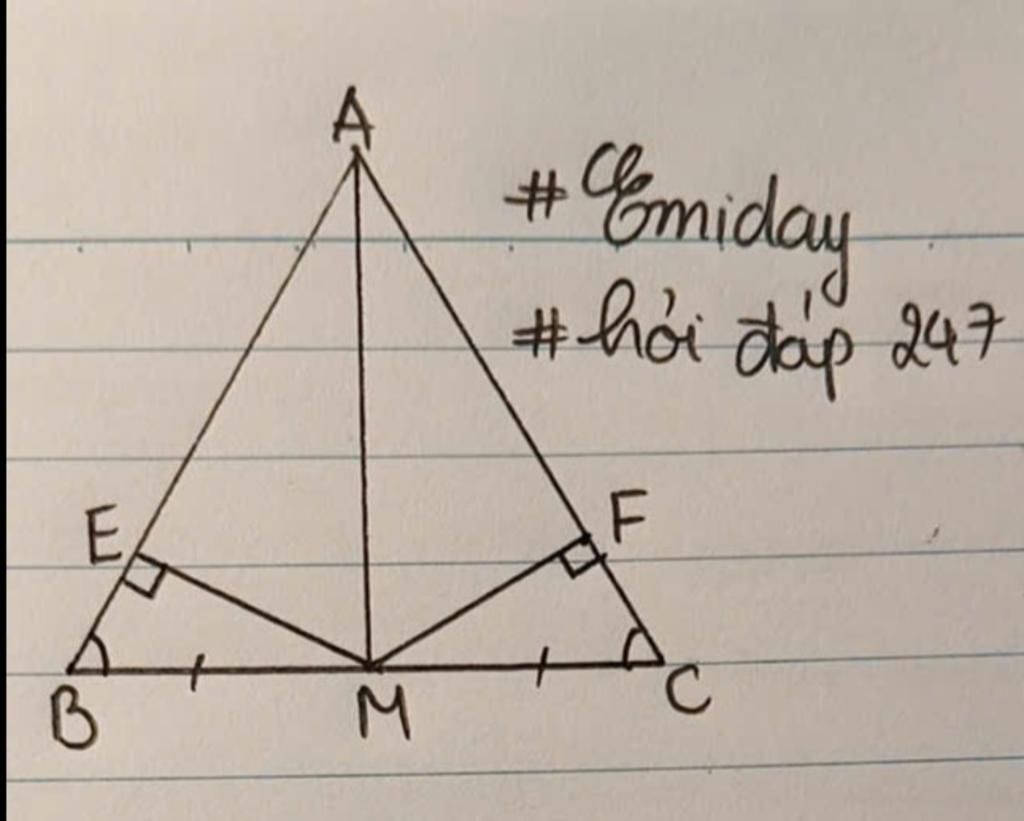 A
# Emiday
# hỏi đáp 247
E
F
B
M
C